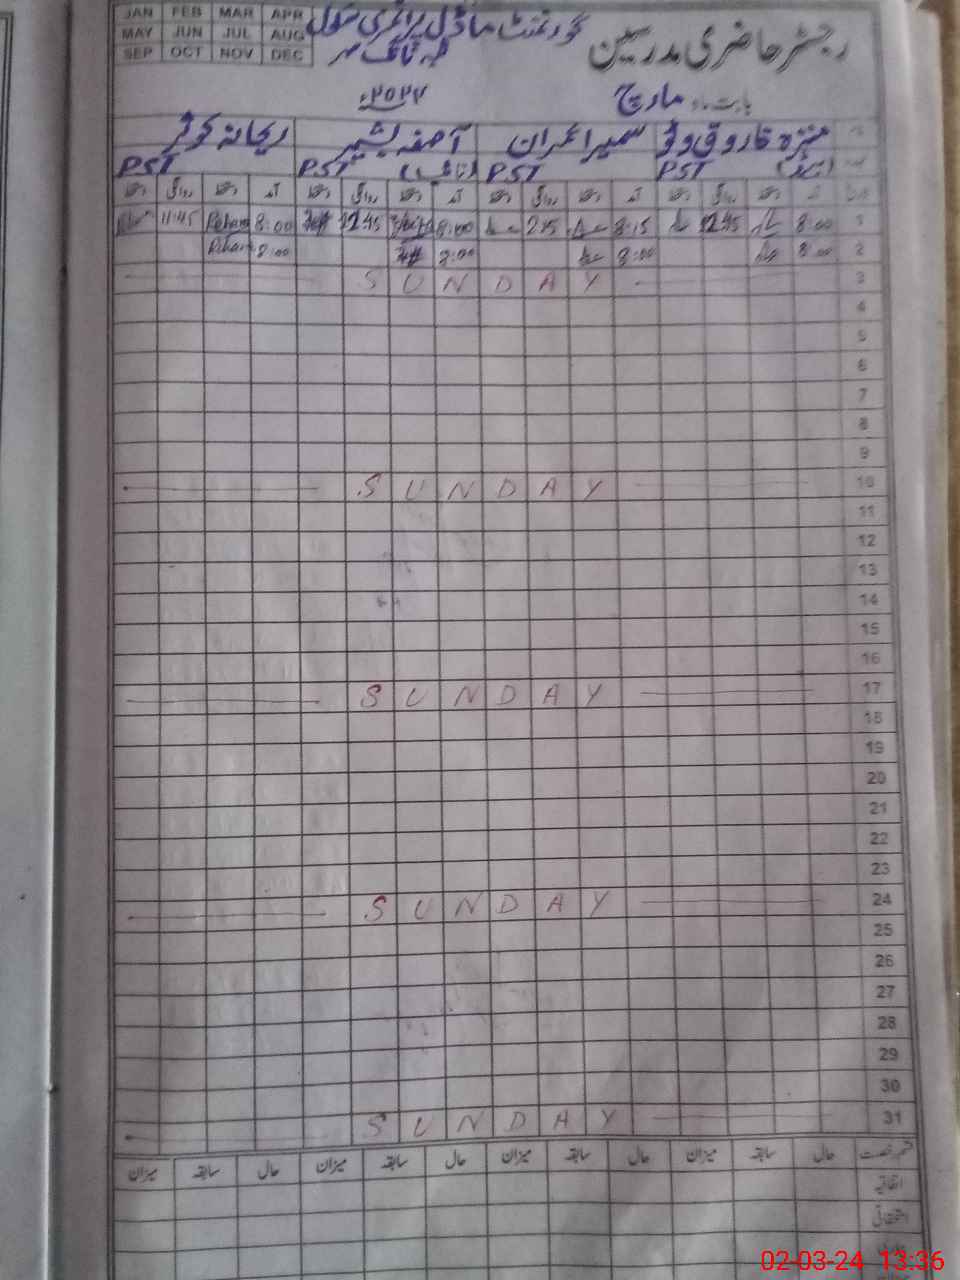 JAN FEB MAR APR
MAY JUN JUL AUG
SEP OCT NOV DEC
گورنمنٹ ماڈل پرائمری سکول
رجسٹر حاضری مدرسین
بابت ماہ مارچ
منزہ فاروق وٹو سمیرا عمران آصفہ بشیر ریحانہ کوثر
PST PST PST PST
آمد دستخط روانگی دستخط آمد دستخط روانگی دستخط آمد دستخط روانگی دستخط آمد دستخط روانگی دستخط
1 8:00 12:45 8:15 2:15 8:00 12:45 8:00 Rehana 11:45
2 8:00 8:00 8:00 8:00
3 SUNDAY
4
5
6
7
8
9
10 SUNDAY
11
12
13
14
15
16
17 SUNDAY
18
19
20
21
22
23
24 SUNDAY
25
26
27
28
29
30
31 SUNDAY
قسم رخصت حال سابقہ میزان حال سابقہ میزان حال سابقہ میزان حال سابقہ میزان
اتفاقیہ
استحقاقی
02-03-24 13:36